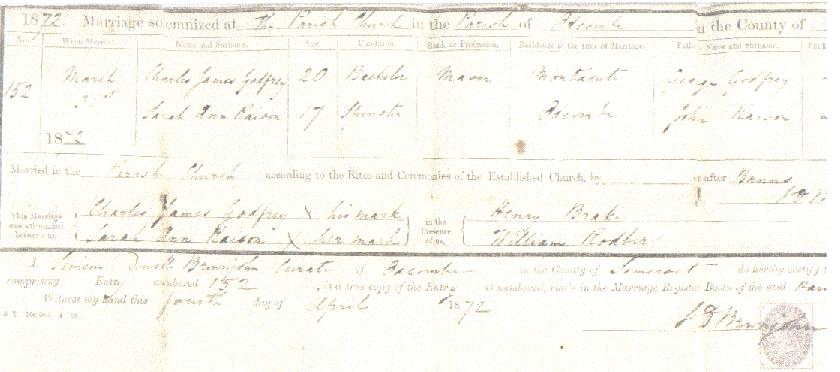 1872 Marriage solemnized at The Parish Church in the Parish of Odcombe in the County of
No. When Married. Name and Surname. Age Condition. Rank or Profession. Residence at the time of Marriage. Father's Name and Surname.
152 March Charles James Godfrey 20 Bachelor Mason Montacute George Godfrey
Sarah Ann Raison 17 Spinster Odcombe John Raison
1872
Married in the Parish Church according to the Rites and Ceremonies of the Established Church, by or after Banns
This Marriage was solemnized between us, Charles James Godfrey his mark in the Presence of us, Henry Brake
Sarah Ann Raison her mark William Rodber
I, Curate of Odcombe in the County of Somerset do hereby certify
comprising Entry numbered 152 is a true copy of the Entry so numbered, made in the Marriage Register Books of the said
Witness my hand this fourth day of April 1872